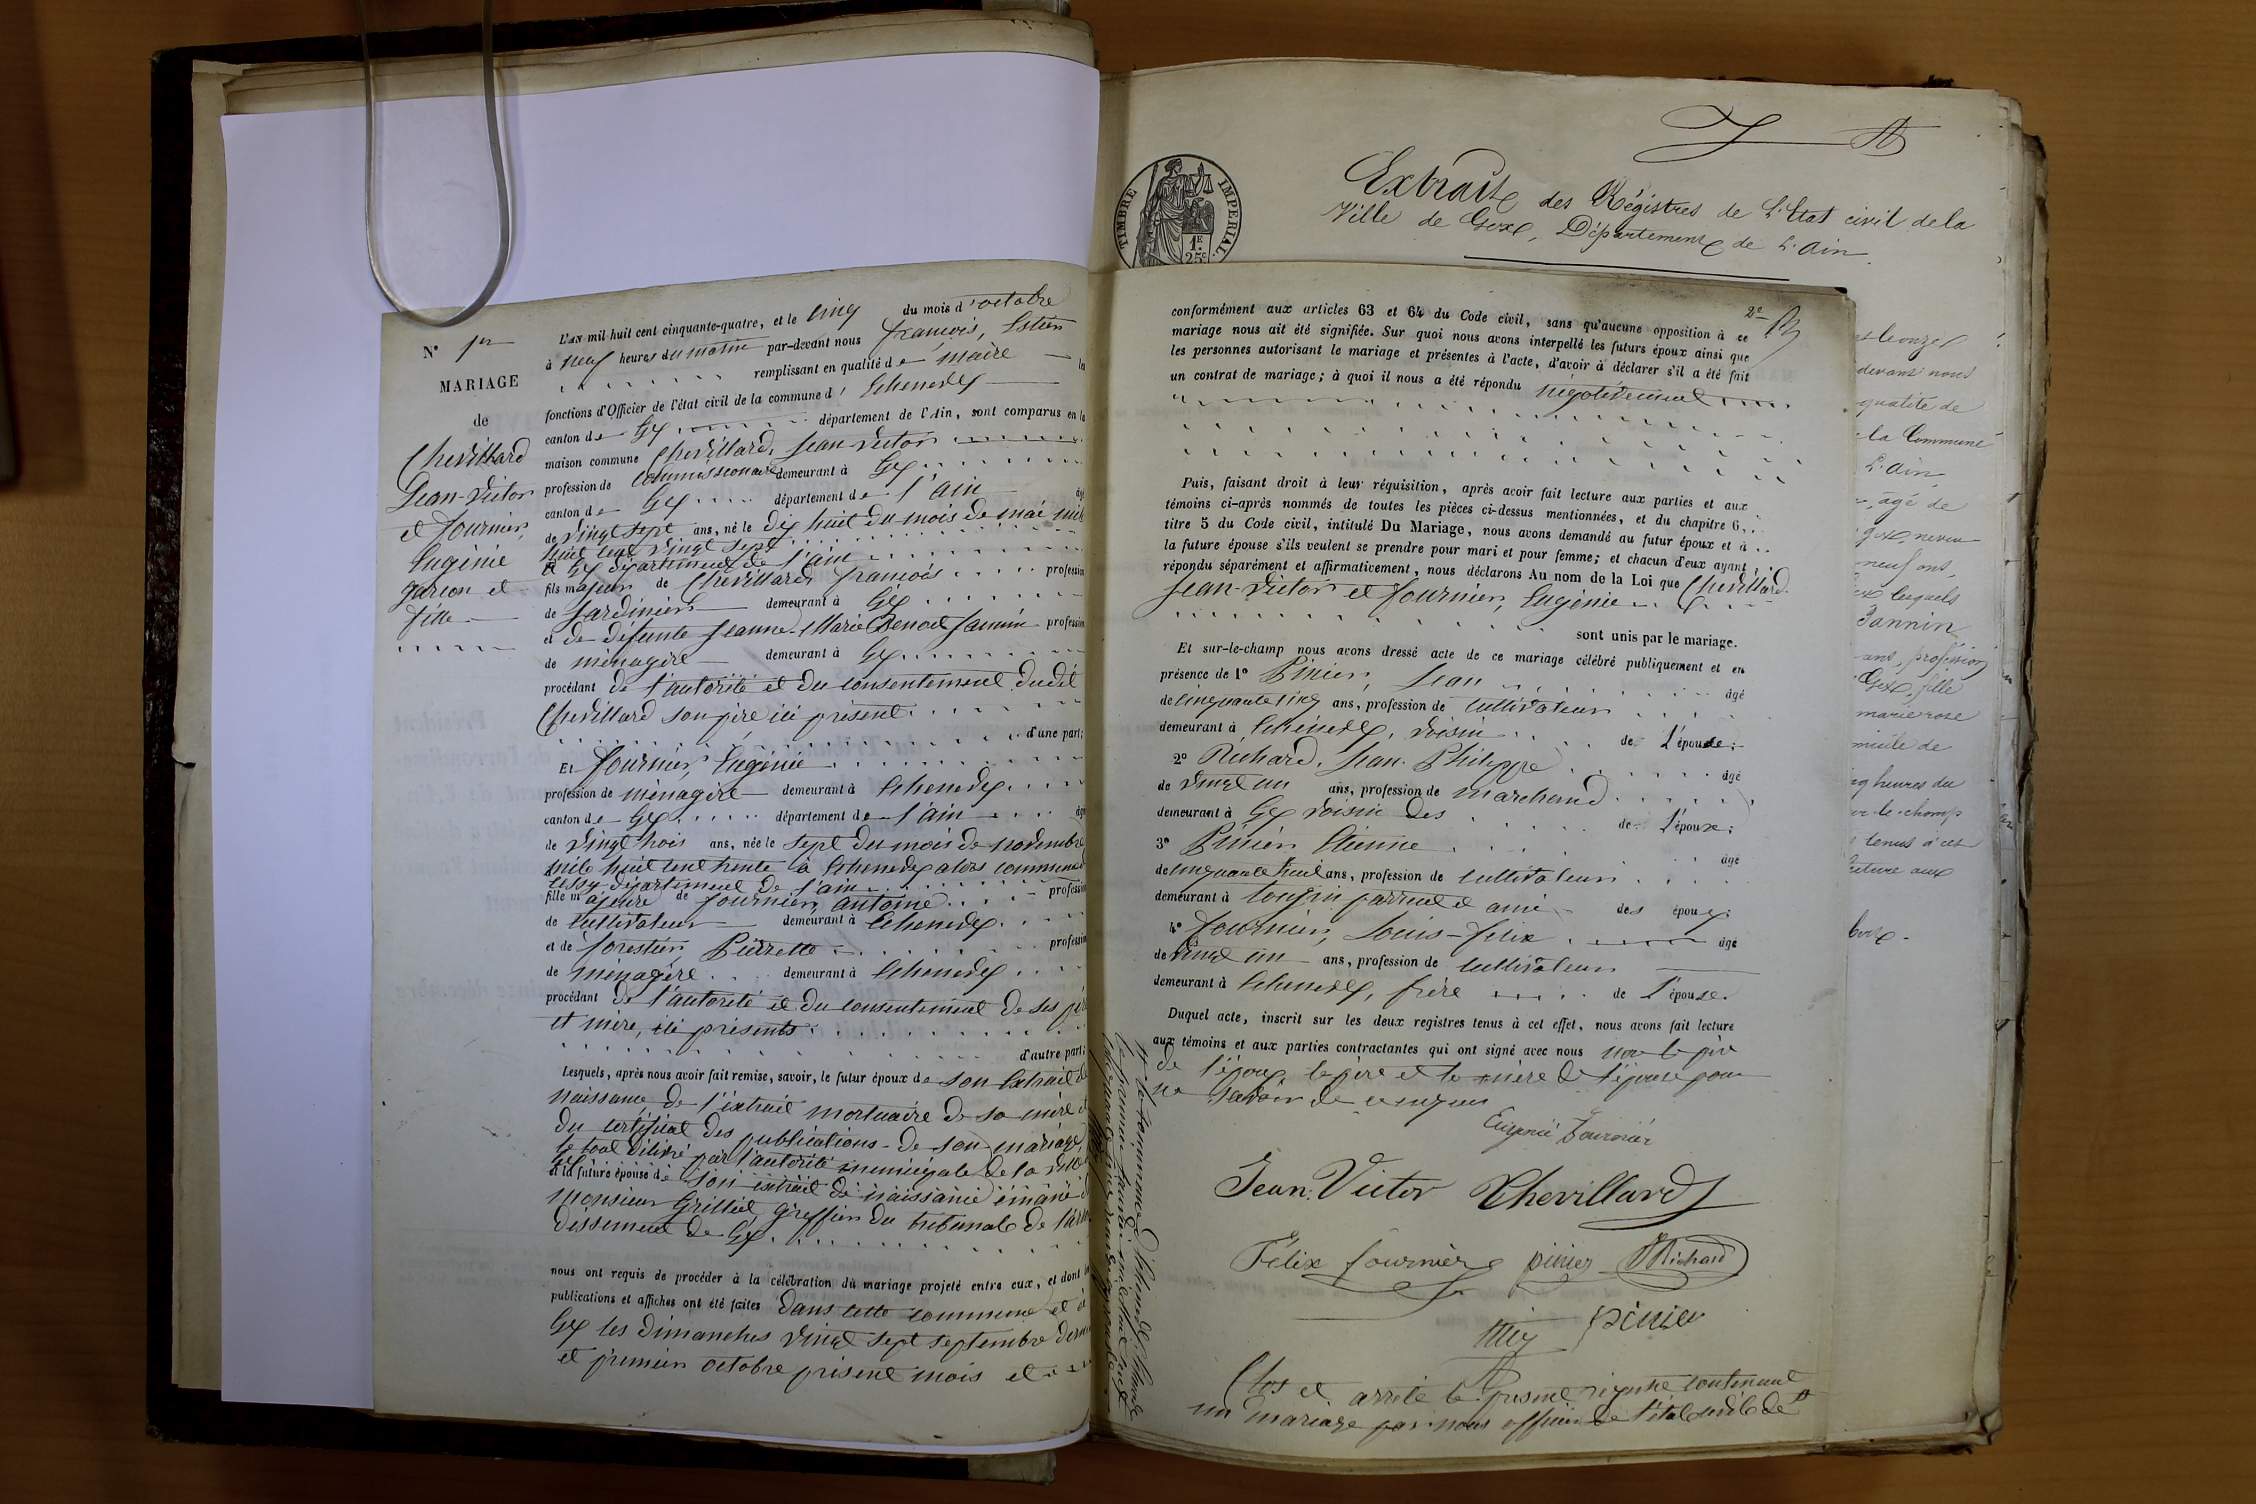 N° 1er
MARIAGE
de
Chevillard
Jean-Victor
et Fournier,
Eugénie
garçon et
fille
L'AN mil huit cent cinquante-quatre, et le cinq du mois d'octobre
à neuf heures du matin par-devant nous François, Estier
remplissant en qualité de maire les
fonctions d'Officier de l'état civil de la commune d' Echenevex
canton de Gex département de l'Ain, sont comparus en la
maison commune Chevillard, Jean-Victor
profession de commissionnaire demeurant à Gex
canton de Gex département de l'ain âgé
de vingt sept ans, né le dix huit du mois de mai mil
huit cent vingt sept
à Gex département de l'ain
fils majeur de Chevillard François profession
de Jardinier demeurant à Gex
et de défunte Jeanne-Marie Benoit Jannin profession
de ménagère demeurant à Gex
procédant de l'autorité et du consentement dudit
Chevillard son père ici présent
d'une part;
ET Fournier, Eugénie
profession de ménagère demeurant à Echenevex
canton de Gex département de l'ain âgée
de vingt trois ans, née le sept du mois de novembre
mile huit cent trente à Echenevex alors commune de
Cessy département de l'ain
fille majeure de Fournier, Antoine profession
de cultivateur demeurant à Echenevex
et de Forestier, Pierrette profession
de ménagère demeurant à Echenevex
procédant de l'autorité et du consentement de ses père
et mère, ici présents
d'autre part;
Lesquels, après nous avoir fait remise, savoir, le futur époux de son Extrait de
naissance de l'extrait mortuaire de sa mère et
du certificat des publications de son mariage
le tout délivré par l'autorité municipale de la ville
Gex
et la future épouse de son extrait de naissance émané de
Monsieur greffier du tribunal de l'arron
dissement de Gex
nous ont requis de procéder à la célébration du mariage projeté entre eux, et dont les
publications et affiches ont été faites dans cette commune et à
Gex les dimanches vingt sept septembre dernier
et premier octobre présent mois et
TIMBRE IMPERIAL
1F
25c
Extrait des Régistres de L'Etat civil de la
Ville de Gex, Département de L'Ain.
2e
conformément aux articles 63 et 64 du Code civil, sans qu'aucune opposition à ce
mariage nous ait été signifiée. Sur quoi nous avons interpellé les futurs époux ainsi que
les personnes autorisant le mariage et présentes à l'acte, d'avoir à déclarer s'il a été fait
un contrat de mariage; à quoi il nous a été répondu négativement
Puis, faisant droit à leur réquisition, après avoir fait lecture aux parties et aux
témoins ci-après nommés de toutes les pièces ci-dessus mentionnées, et du chapitre 6,
titre 5 du Code civil, intitulé Du Mariage, nous avons demandé au futur époux et à
la future épouse s'ils veulent se prendre pour mari et pour femme; et chacun d'eux ayant
répondu séparément et affirmativement, nous déclarons Au nom de la Loi que Chevillard
Jean-Victor et Fournier, Eugénie
sont unis par le mariage.
Et sur-le-champ nous avons dressé acte de ce mariage célébré publiquement et en
présence de 1° Pinier, Jean âgé
de cinquante cinq ans, profession de cultivateur
demeurant à Echenevex, voisin de L'épouse;
2° Richard, Jean-Philippe âgé
de vingt un ans, profession de marchand
demeurant à Gex voisin des de L'époux;
3° Pinier Etienne âgé
de cinquante huit ans, profession de cultivateur
demeurant à Tougin parrent et ami des époux;
4° Fournier, Louis-felix âgé
de vingt un ans, profession de cultivateur
demeurant à Echenevex, frère de l'épouse.
Duquel acte, inscrit sur les deux registres tenus à cet effet, nous avons fait lecture
aux témoins et aux parties contractantes qui ont signé avec nous non le père
de l'époux le père et la mère de l'épouse pour
ne savoir de ce requis
Eugénie Fournier
Jean. Victor Chevillard
Félix fournier pinier Richard
pinier
Clos et arrêté le présent registre contenant
un mariage par nous officier de l'état civil de
devant nous
qualité de
la Commune
L'Ain,
âgé de
gex, neveu
neuf ans,
lesquels
Jannin
ans, profession
Gex, fille
marie rose
cinq heures du
sur-le-champ
tenus à cet
lecture aux